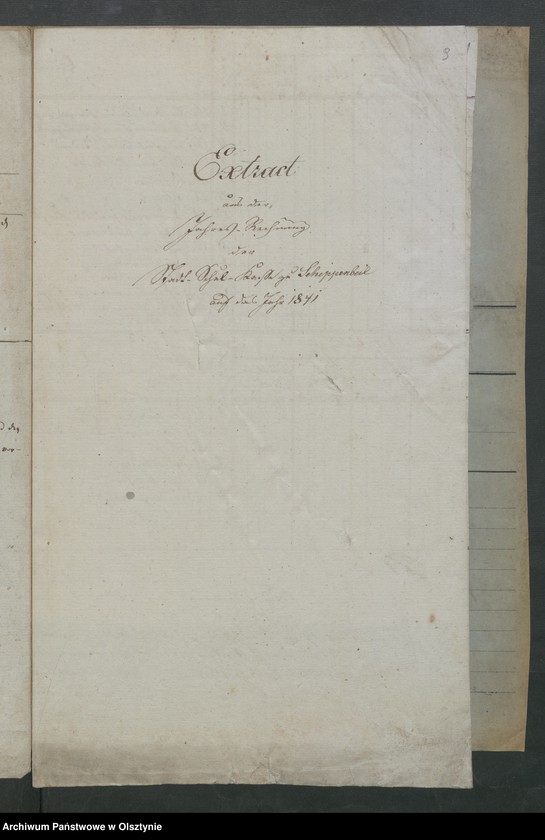 9
Extract
aus der
Jahres-Rechnung
der
Stadt-Schul-Kasse zu Schippenbeil
auf das Jahr 1841
Archiwum Państwowe w Olsztynie